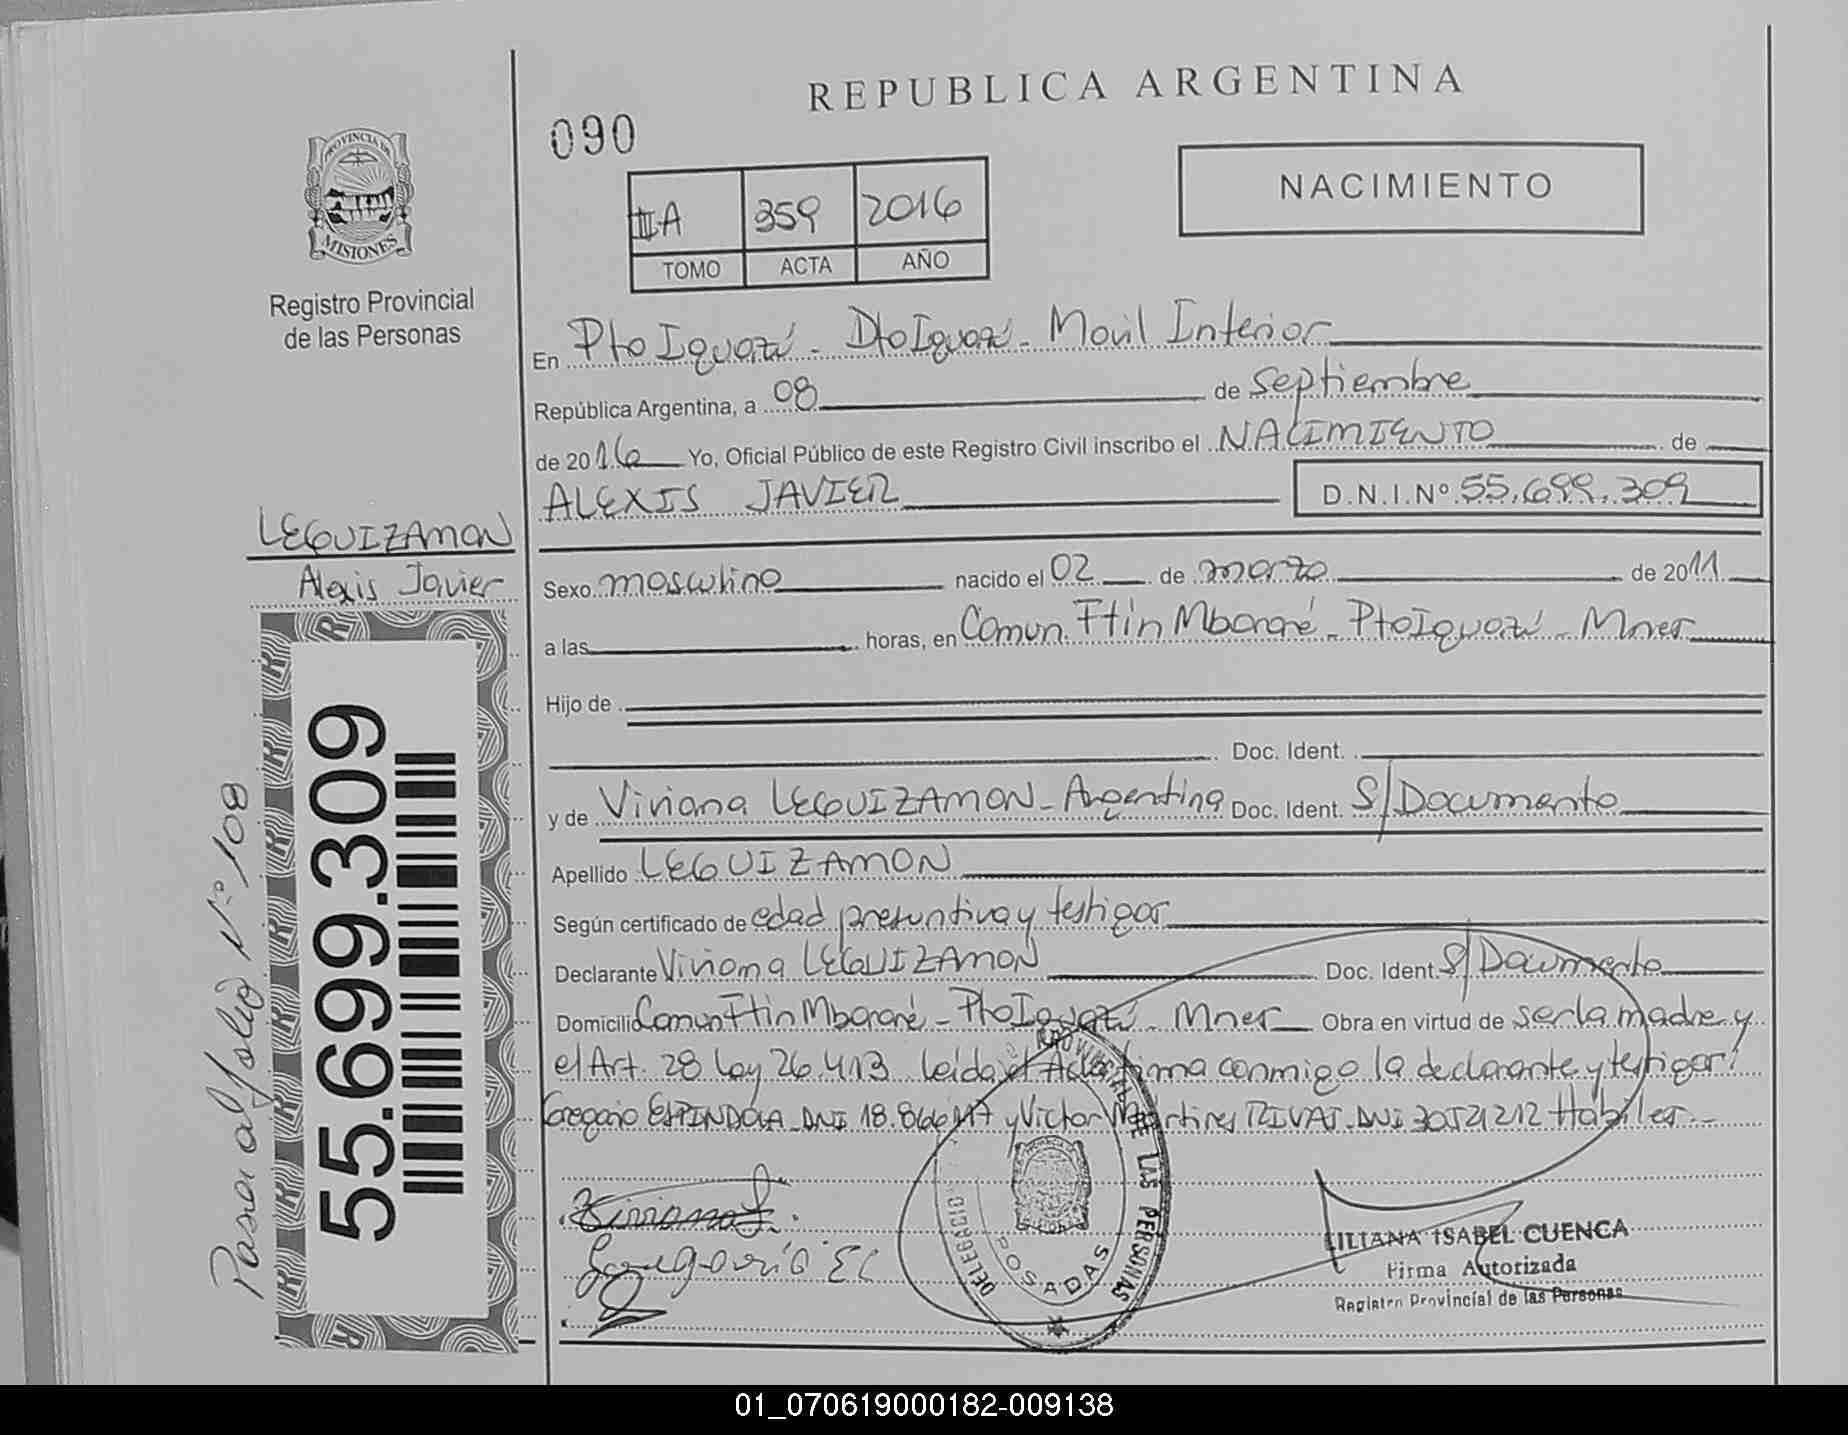 REPUBLICA ARGENTINA
090
NACIMIENTO
PROVINCIA DE
MISIONES
Registro Provincial
de las Personas
IIA 359 2016
TOMO ACTA AÑO
En Pto Iguazú - Dto Iguazú - Movil Interior
República Argentina, a 08 de Septiembre
de 2016 Yo, Oficial Público de este Registro Civil inscribo el NACIMIENTO de
ALEXIS JAVIER D.N.I.Nº 55.699.309
LEGUIZAMON
Alexis Javier
Sexo masculino nacido el 02 de marzo de 2011
a las horas, en Comun. Ftin Mbororé - Pto Iguazú - Mnes
Hijo de
Doc. Ident.
y de Viviana LEGUIZAMON - Argentina Doc. Ident. S/Documento
Apellido LEGUIZAMON
Según certificado de edad presuntiva y testigos
Declarante Viviana LEGUIZAMON Doc. Ident. S/Documento
Domicilio Comun Ftin Mbororé - Pto Iguazú - Mnes Obra en virtud de ser la madre y
el Art. 28 Ley 26.413 Leída el Acta firma conmigo la declarante y testigos:
Gregorio ESPINDOLA DNI y Victor Martires DNI Habiles.-
55.699.309
Pasa al folio Nº 108
Viviana L.
Gregorio
REGISTRO PROVINCIAL DE LAS PERSONAS
DELEGACION
POSADAS
LILIANA ISABEL CUENCA
Firma Autorizada
Registro Provincial de las Personas
01_070619000182-009138